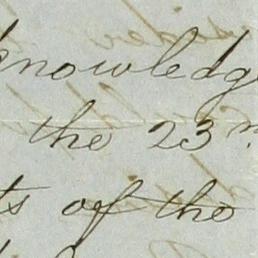 knowledge
the 23
ts of the